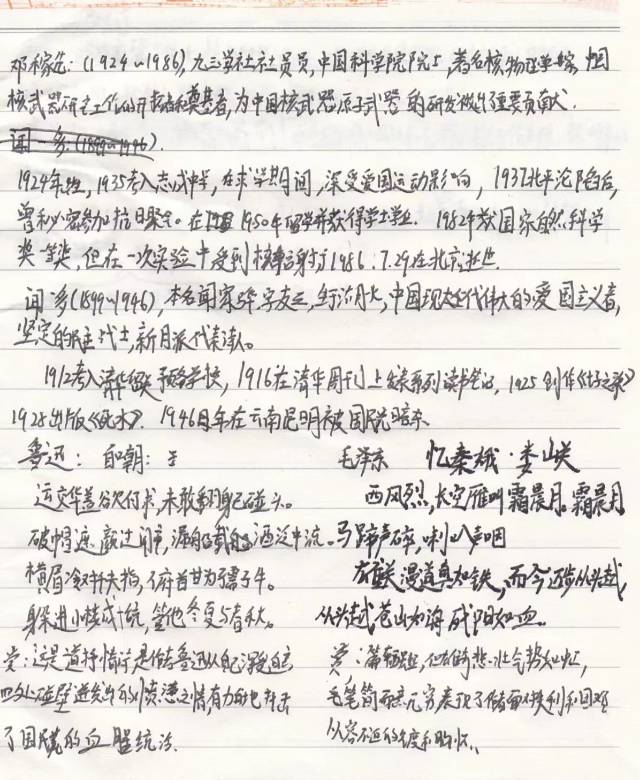 邓稼先：(1924~1986)，九三学社社员，中国科学院院士，著名核物理学家，中国
核武器研究工作的开拓者和奠基者，为中国核武器原子武器的研发做出重要贡献．
闻一多(1899~1946)．
1924年，1935考入志成中学，在求学期间，深受爱国运动影响，1937北平沦陷后，
曾秘密参加抗日聚会。在 1950年留学并获得学士学位．1982年获国家自然科学
奖一等奖，但在一次实验中受到核辐射于1986.7.29在北京逝世．
闻一多(1899~1946)，本名闻家骅，字友三，生于浠水，中国现代伟大的爱国主义者，
坚定的民主战士，新月派代表诗人。
1912考入清华留美预备学校，1916在清华周刊上发表系列读书笔记，1925创作《七子之歌》
1928出版《死水》．1946年在云南昆明被国民党暗杀
鲁迅：自嘲：
运交华盖欲何求，未敢翻身已碰头。
破帽遮颜过闹市，漏船载酒泛中流。
横眉冷对千夫指，俯首甘为孺子牛。
躲进小楼成一统，管他冬夏与春秋。
赏：这是首抒情诗是作者鲁迅从自己深受的
四处碰壁迸发出的愤懑之情，有力的抨击
了国民党的血腥统治．
毛泽东 忆秦娥·娄山关
西风烈，长空雁叫霜晨月。霜晨月
马蹄声碎，喇叭声咽
雄关漫道真如铁，而今迈步从头越
从头越苍山如海 残阳如血。
赏：篇幅短，但雄奇悲壮气势如虹，
毛笔简而意无穷，表现了作者面对失利和困难
从容不迫的气度和胸怀．